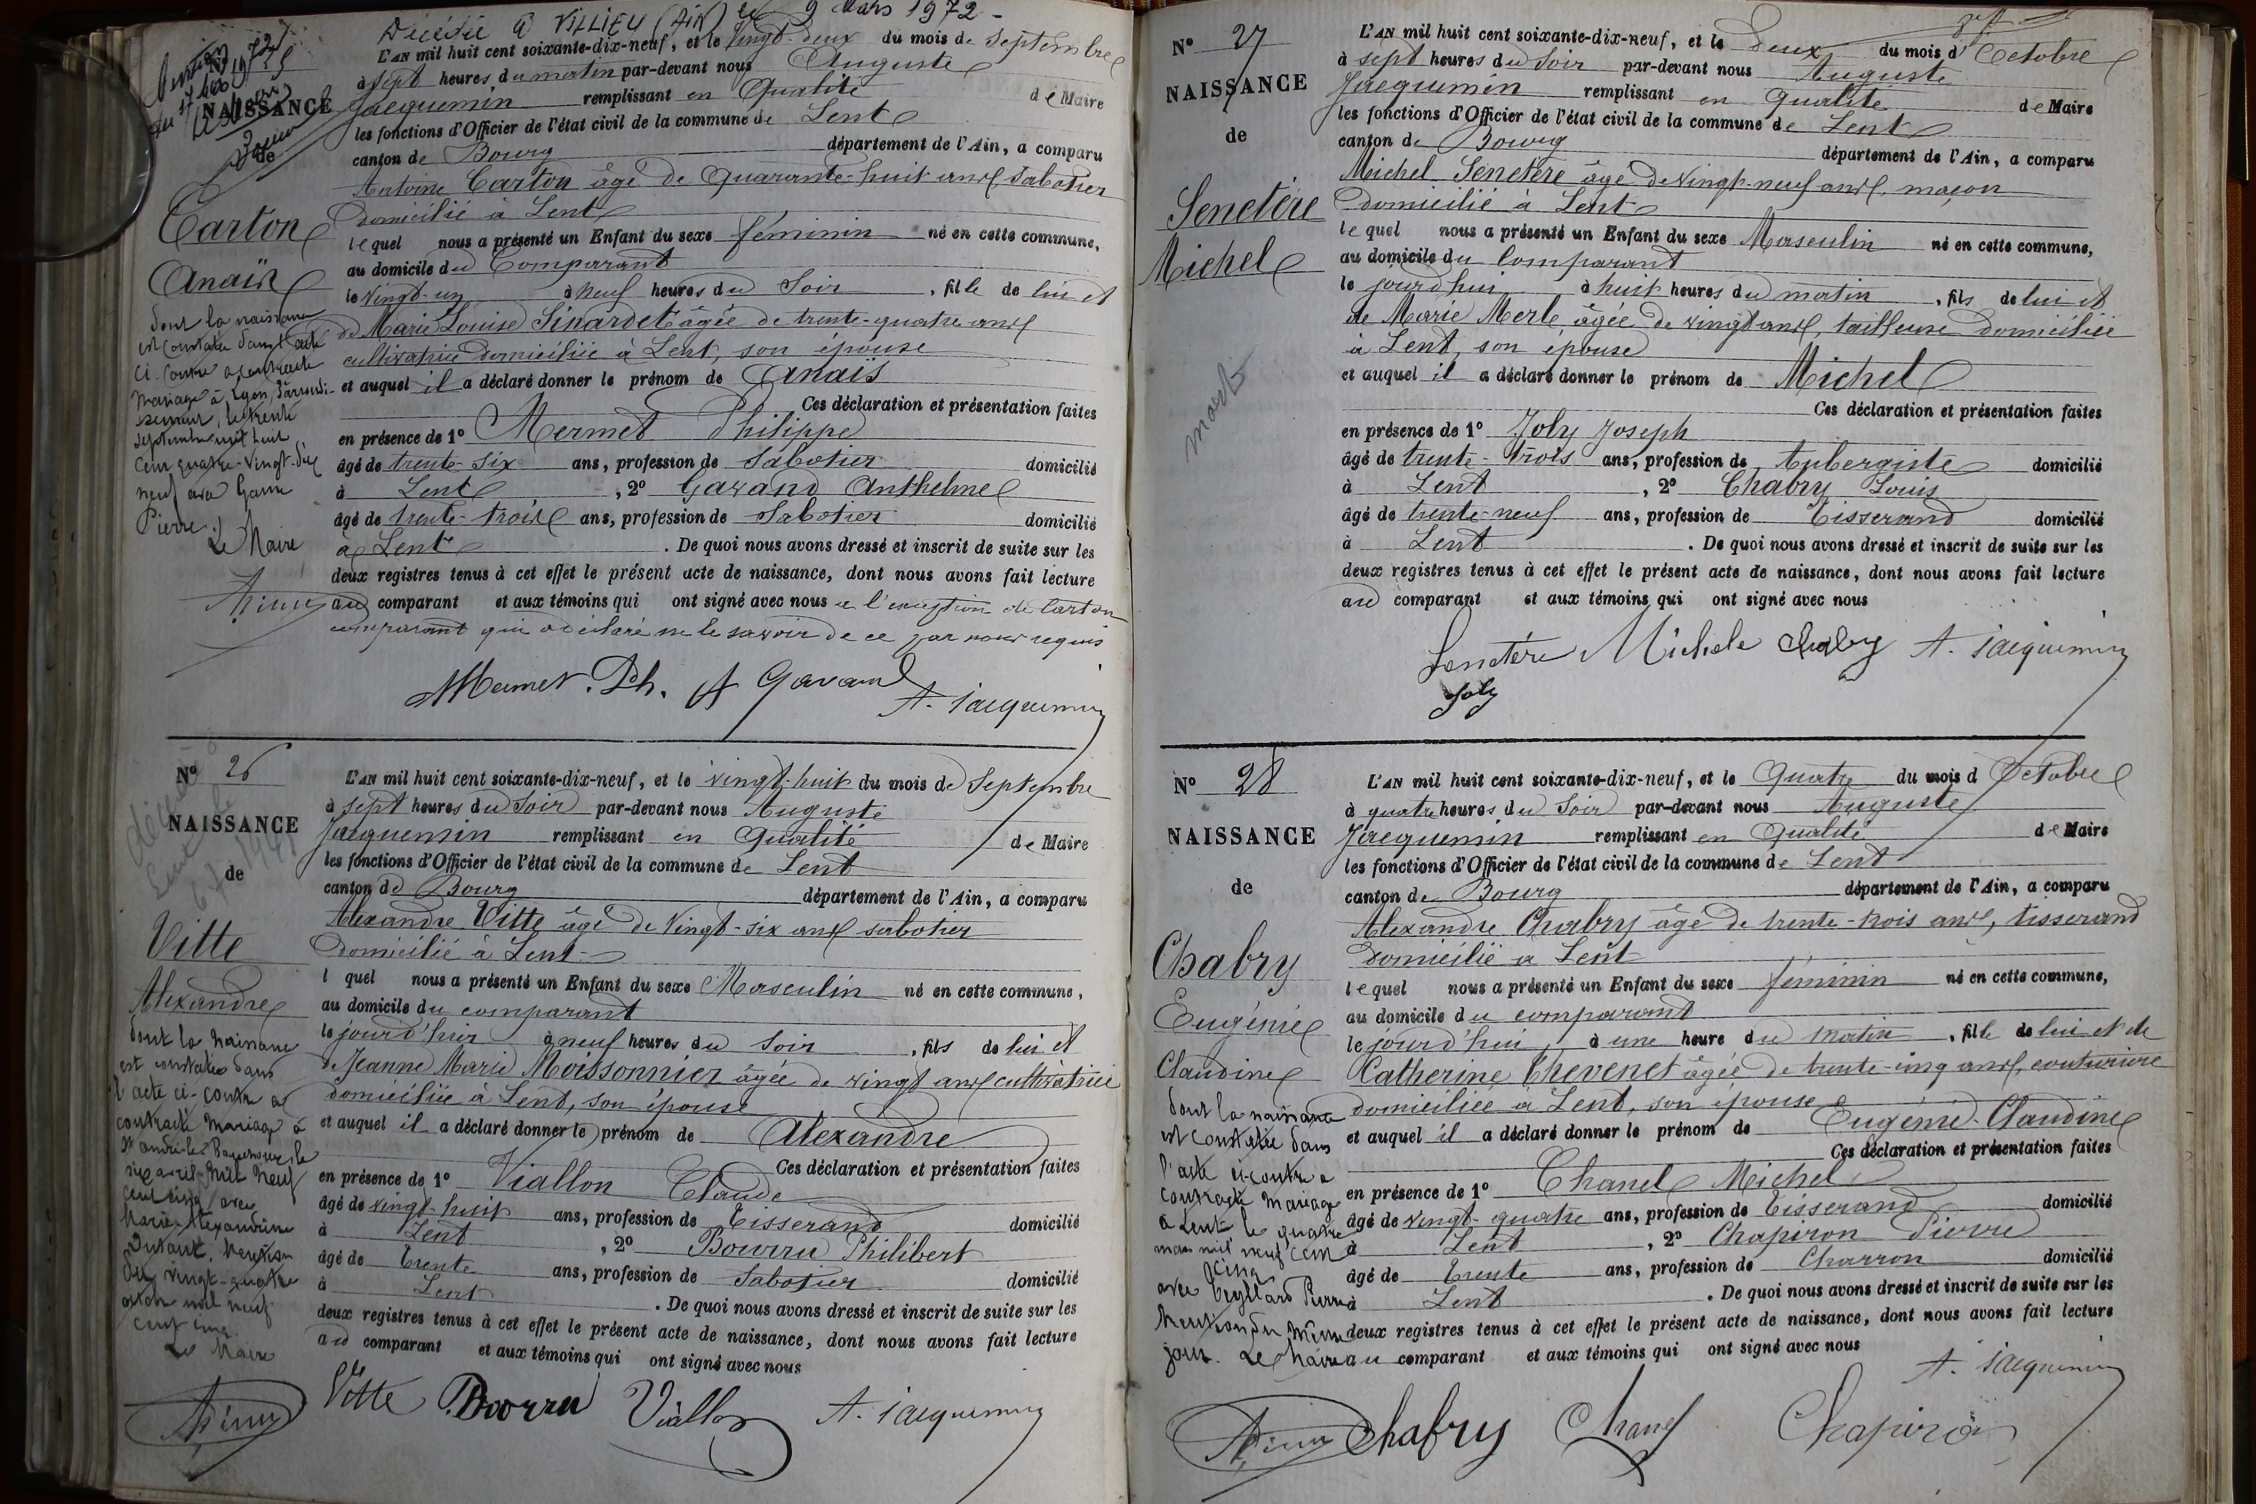 Décédée à VILLIEU (AIN) le 9 Mars 1972 -
L'AN mil huit cent soixante-dix-neuf, et le Vingt-deux du mois de Septembre
à sept heures du matin par-devant nous Auguste
Jacquemin remplissant en Qualité de Maire
les fonctions d'Officier de l'état civil de la commune de Lent
canton de Bourg département de l'Ain, a comparu
Antoine Carton âgé de Quarante-huit ans, Sabotier
Domicilié à Lent
lequel nous a présenté un Enfant du sexe féminin né en cette commune,
au domicile du Comparant
le Vingt-un à Neuf heures du Soir, fille de lui et
de Marie Louise Sinardet âgée de trente-quatre ans
cultivatrice domiciliée à Lent, son épouse
et auquel il a déclaré donner le prénom de Anaïs
Ces déclaration et présentation faites
en présence de 1° Mermet Philippe
âgé de trente-six ans, profession de Sabotier domicilié
à Lent, 2° Gavand Anthelme
âgé de trente-trois ans, profession de Sabotier domicilié
à Lent. De quoi nous avons dressé et inscrit de suite sur les
deux registres tenus à cet effet le présent acte de naissance, dont nous avons fait lecture
au comparant et aux témoins qui ont signé avec nous à l'exception de Carton
comparant qui a déclaré ne le savoir de ce par nous requis
Mermet. Ph. A Gavand A. Jacquemin
NAISSANCE
de
Carton
Anaïs
dont la naissance
est constatée dans l'acte
ci-contre a contracté
mariage à Lyon, arrondi-
ssement, le trente
septembre mil huit
cent quatre-vingt-dix
neuf avec
Pierre.
Le Maire
N° 26
NAISSANCE
de
Vitte
Alexandre
dont la naissance
est constatée dans
l'acte ci-contre a
contracté mariage à
St André-le-Bouchoux, le
six avril mil neuf
cent cinq avec
Marie-Alexandrine
Dutant. Mention
du vingt-quatre
mil neuf
cent cinq.
Le Maire
L'AN mil huit cent soixante-dix-neuf, et le vingt-huit du mois de Septembre
à sept heures du Soir par-devant nous Auguste
Jacquemin remplissant en Qualité de Maire
les fonctions d'Officier de l'état civil de la commune de Lent
canton de Bourg département de l'Ain, a comparu
Alexandre Vitte âgé de Vingt-six ans sabotier
Domicilié à Lent
l quel nous a présenté un Enfant du sexe Masculin né en cette commune,
au domicile du comparant
le jour d'hier à neuf heures du Soir, fils de lui et
de Jeanne Marie Moissonnier âgée de vingt ans cultivatrice
domiciliée à Lent, son épouse
et auquel il a déclaré donner le prénom de Alexandre
Ces déclaration et présentation faites
en présence de 1° Viallon Claude
âgé de vingt-huit ans, profession de Tisserand domicilié
à Lent, 2° Bourru Philibert
âgé de Trente ans, profession de Sabotier domicilié
à Lent. De quoi nous avons dressé et inscrit de suite sur les
deux registres tenus à cet effet le présent acte de naissance, dont nous avons fait lecture
au comparant et aux témoins qui ont signé avec nous
Vitte Bourru Viallon A. Jacquemin
N° 27
NAISSANCE
de
Senetére
Michel
mort
L'AN mil huit cent soixante-dix-neuf, et le Deux du mois d'Octobre
à sept heures du Soir par-devant nous Auguste
Jacquemin remplissant en Qualité de Maire
les fonctions d'Officier de l'état civil de la commune de Lent
canton de Bourg département de l'Ain, a comparu
Michel Senetère âgé de Vingt-neuf ans, maçon
domicilié à Lent
lequel nous a présenté un Enfant du sexe Masculin né en cette commune,
au domicile du Comparant
le jourd'hui à huit heures du matin, fils de lui et
de Marie Merle âgée de vingt ans, tailleuse domiciliée
à Lent, son épouse
et auquel il a déclaré donner le prénom de Michel
Ces déclaration et présentation faites
en présence de 1° Joly Joseph
âgé de trente-trois ans, profession de Aubergiste domicilié
à Lent, 2° Chabry Louis
âgé de trente-neuf ans, profession de Tisserand domicilié
à Lent. De quoi nous avons dressé et inscrit de suite sur les
deux registres tenus à cet effet le présent acte de naissance, dont nous avons fait lecture
au comparant et aux témoins qui ont signé avec nous
Senetére Michele Chabry A. Jacquemin
Joly
N° 28
NAISSANCE
de
Chabry
Eugénie
Claudine
dont la naissance
est constatée dans
l'acte ci-contre a
contracté mariage
à Lent le quatre
mars mil neuf cent
cinq
avec Pierre
Mention du même
jour. Le Maire
L'AN mil huit cent soixante-dix-neuf, et le Quatre du mois d Octobre
à quatre heures du Soir par-devant nous Auguste
Jacquemin remplissant en Qualité de Maire
les fonctions d'Officier de l'état civil de la commune de Lent
canton de Bourg département de l'Ain, a comparu
Alexandre Chabry âgé de trente-trois ans, tisserand
Domicilié à Lent
lequel nous a présenté un Enfant du sexe féminin né en cette commune,
au domicile du comparant
le jourd'hui, à une heure du matin, fille de lui et de
Catherine Thevenet âgée de trente-cinq ans, couturière
domiciliée à Lent, son épouse
et auquel il a déclaré donner le prénom de Eugénie-Claudine
Ces déclaration et présentation faites
en présence de 1° Chanel Michel
âgé de vingt-quatre ans, profession de Tisserand domicilié
à Lent, 2° Chapiron Pierre
âgé de Trente ans, profession de Charron domicilié
à Lent. De quoi nous avons dressé et inscrit de suite sur les
deux registres tenus à cet effet le présent acte de naissance, dont nous avons fait lecture
au comparant et aux témoins qui ont signé avec nous
A. Jacquemin
Chabry Chanel Chapiron